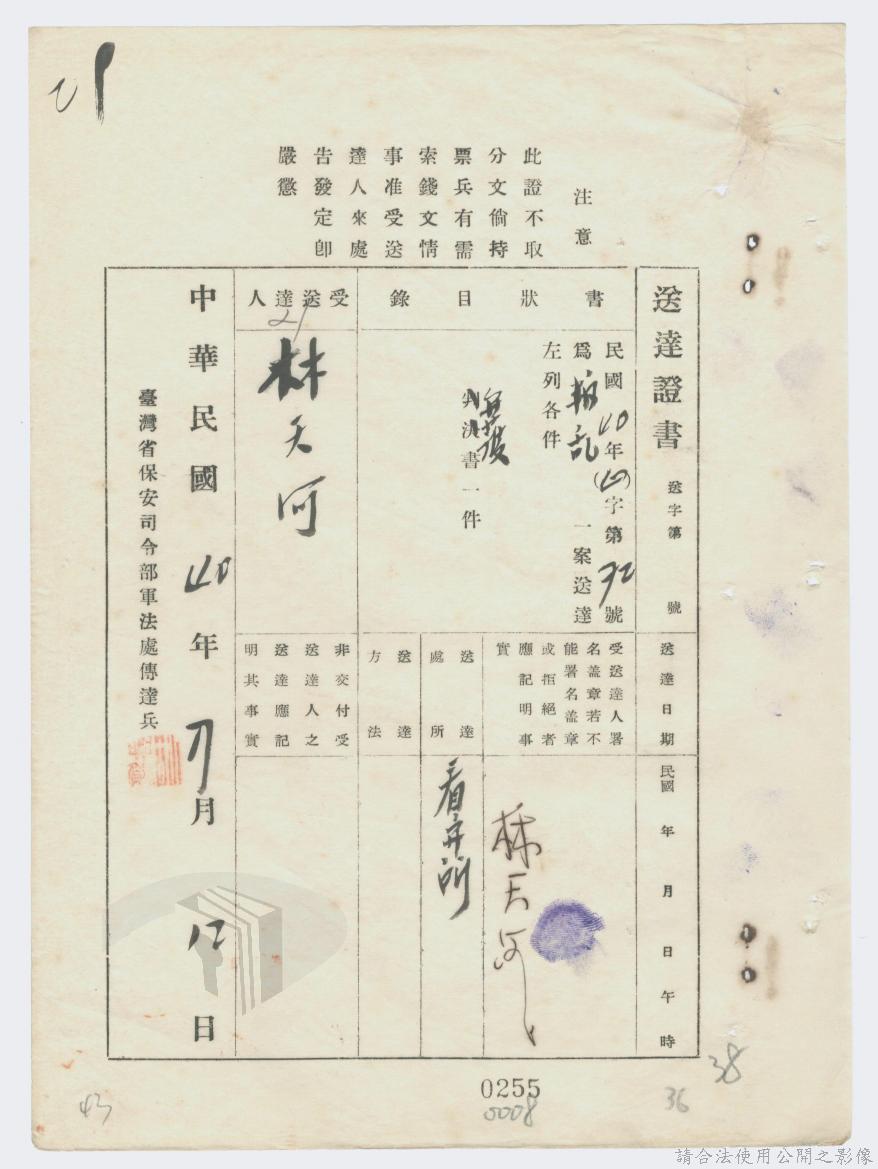 注意
此證不取
分文倘持
票兵有需
索錢文情
事准受送
達人來處
告發定卽
嚴懲
送達證書
送字第 號
送達日期
民國 年 月 日 午 時
書狀目錄
民國40年()字第號
爲叛亂一案送達
左列各件
判決書一件
受送達人署
名盖章若不
能署名盖章
或拒絕者
應記明事
實
林天河
送達
處所
看守所
送達
方法
受送達人
林天河
非交付受
送達人之
送達應記
明其事實
中華民國40年月12日
臺灣省保安司令部軍法處傳達兵
0255
0008
36
38
43
請合法使用公開之影像